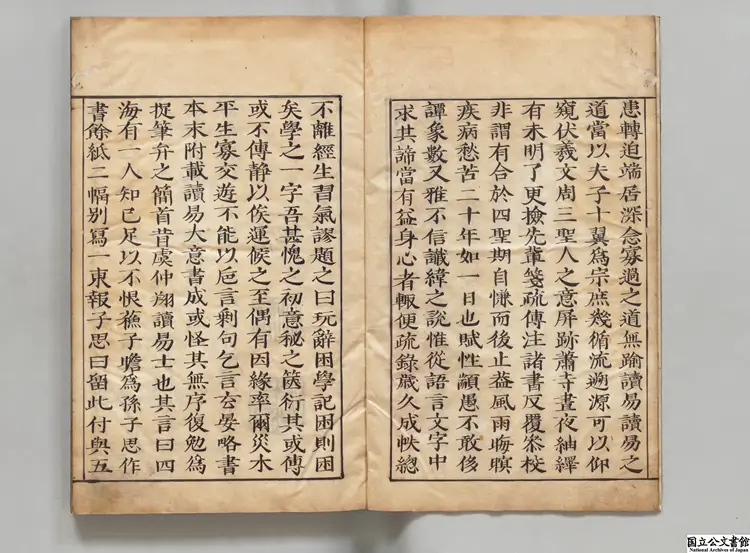 患轉迫端居深念寡過之道無踰讀易讀易之
道當以夫子十翼爲宗庶幾循流遡源可以仰
窺伏羲文周三聖人之意屏跡蕭寺晝夜紬繹
有未明了更撿先軰箋疏傳注諸書反覆叅挍
非謂有合於四聖期自慊而後止葢風雨晦暝
疾病愁苦二十年如一日也賦性顓愚不敢侈
譚象數又雅不信讖緯之說惟從語言文字中
求其諦當有益身心者輙便疏錄歲久成帙總
不離經生習氣謬題之曰玩辭困學記困則困
矣學之一字吾甚愧之初意秘之篋衍其或傳
或不傳靜以俟運候之至偶有因緣率爾災木
平生寡交遊不能以巵言剩句乞言玄晏略書
本末附載讀易大意書成或怪其無序復勉爲
捉筆弁之簡首昔虞仲翔讀易士也其言曰四
海有一人知己足以不恨蘓子瞻爲孫子思作
書餘紙二幅別寫一束報子思曰留此付與五
国立公文書館
National Archives of Japan